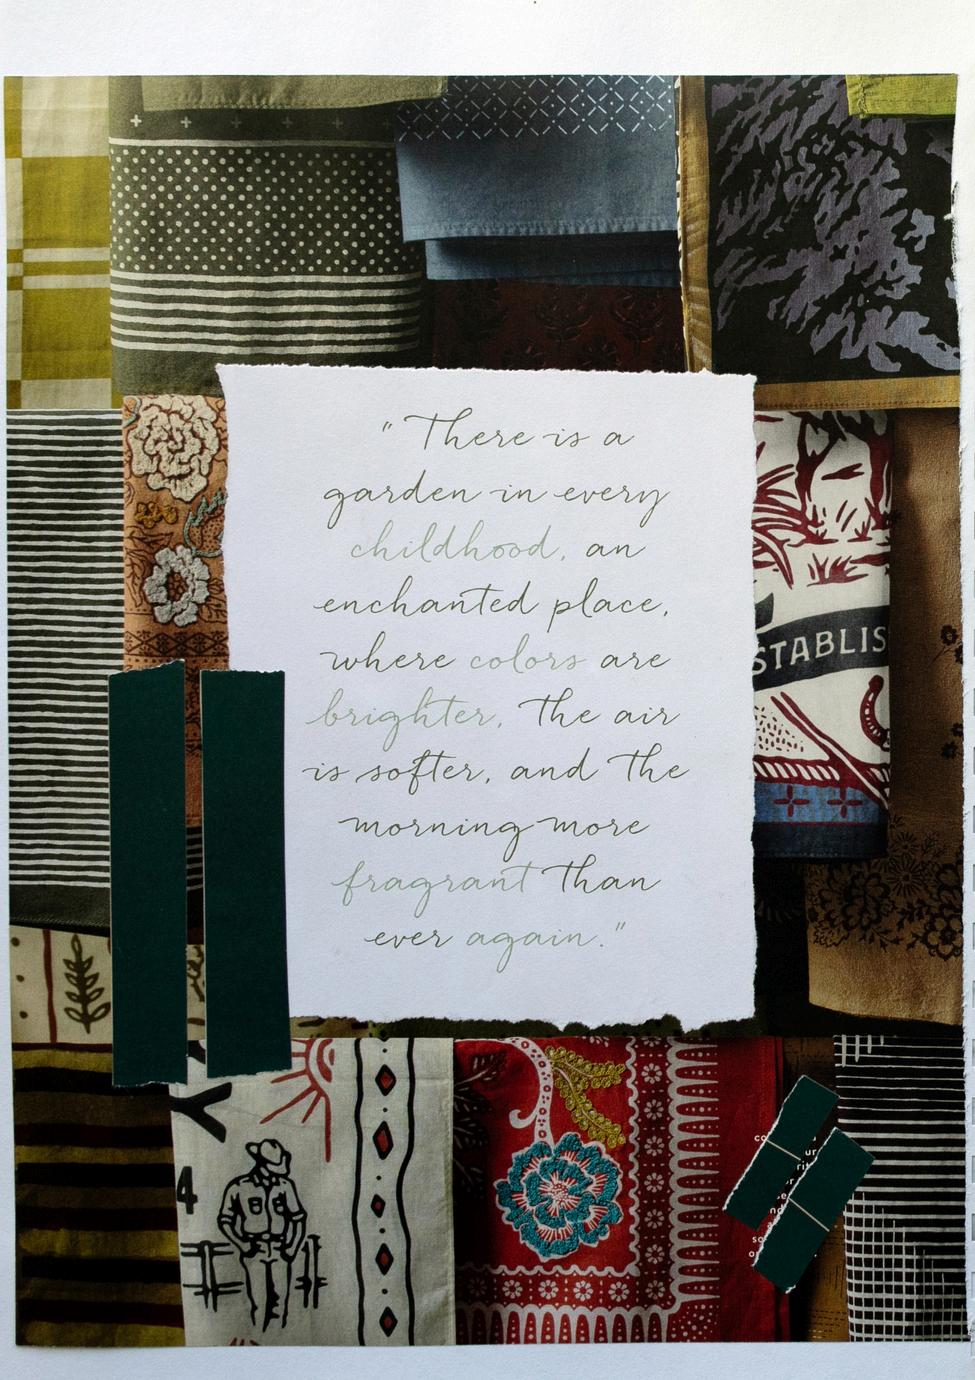 "There is a
garden in every
childhood, an
enchanted place,
where colors are
brighter, the air
is softer, and the
morning more
fragrant than
ever again."
STABLIS
4